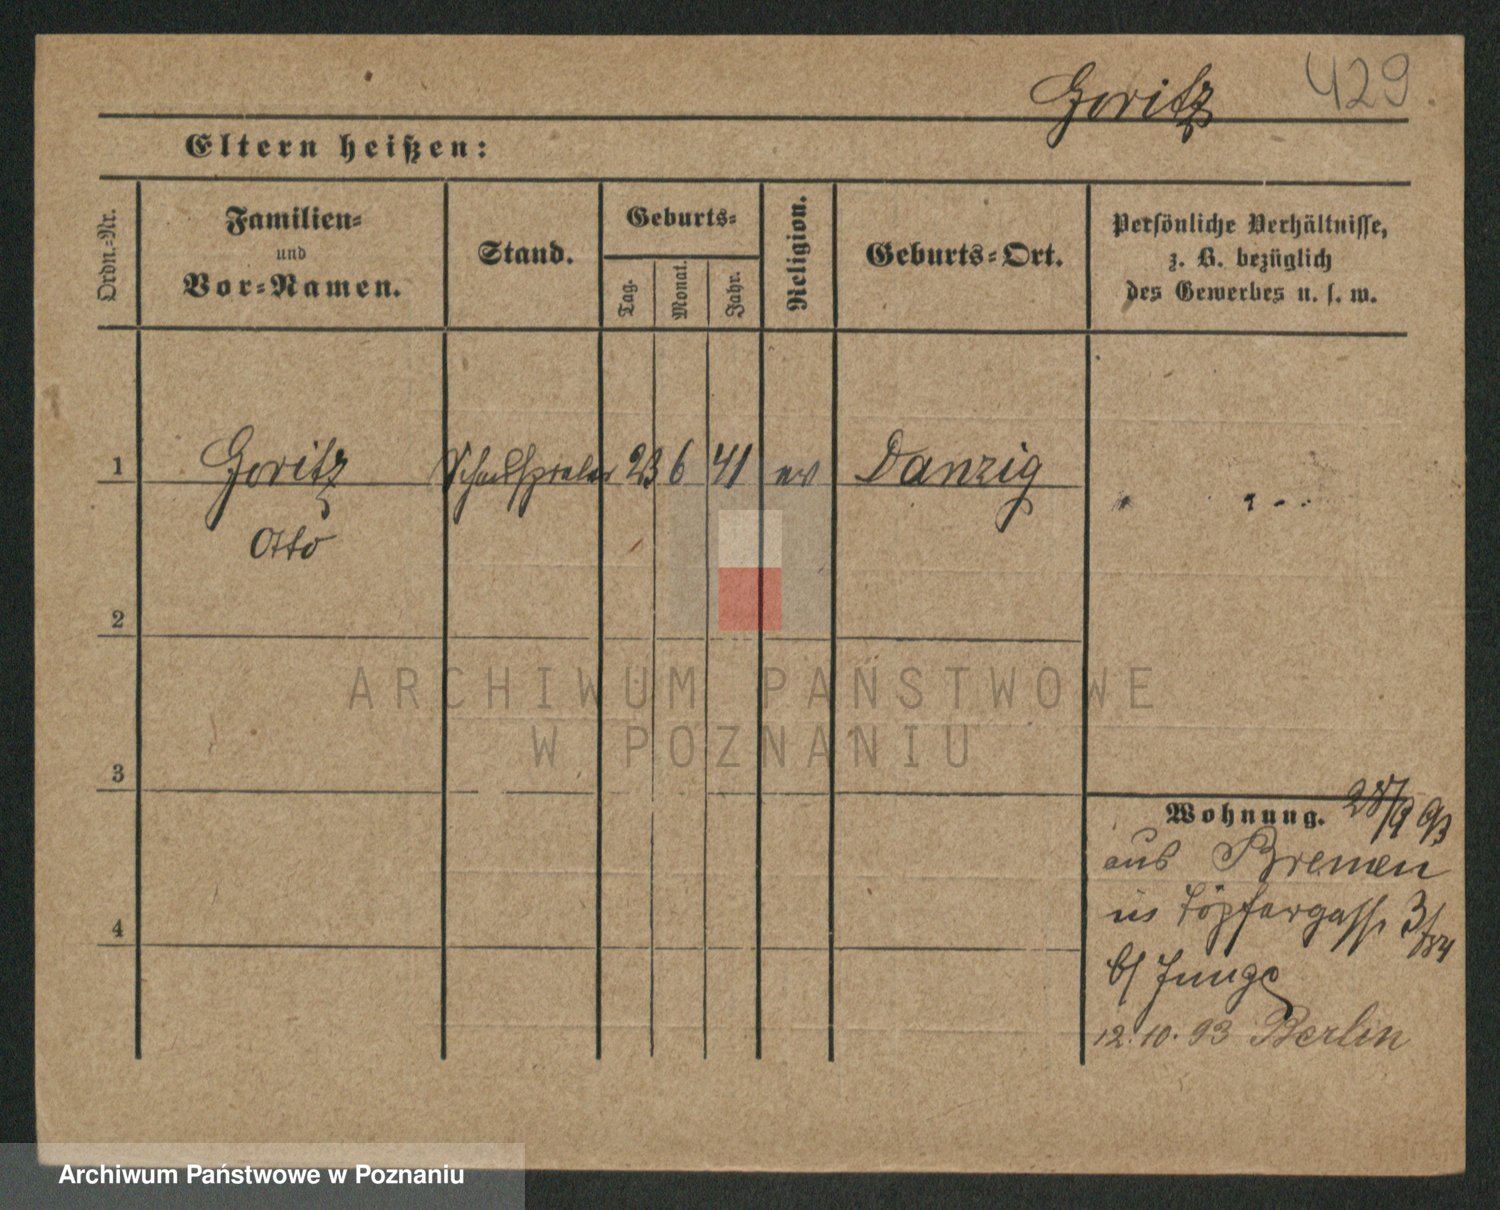 Goritz 429
Eltern heißen:
Ordn.-Nr.
Familien-
und
Vor-Namen.
Stand.
Geburts-
Tag.
Monat.
Jahr.
Religion.
Geburts-Ort.
Persönliche Verhältnisse,
z. B. bezüglich
des Gewerbes u. s. w.
1 Goritz Schauspieler 23 6 41 ev Danzig
Otto
2
ARCHIWUM PAŃSTWOWE
W POZNANIU
3
Wohnung. 28/9 93
aus Bremen
in Töpfergasse 3/
b/ Junge
12.10.93 Berlin
4
Archiwum Państwowe w Poznaniu